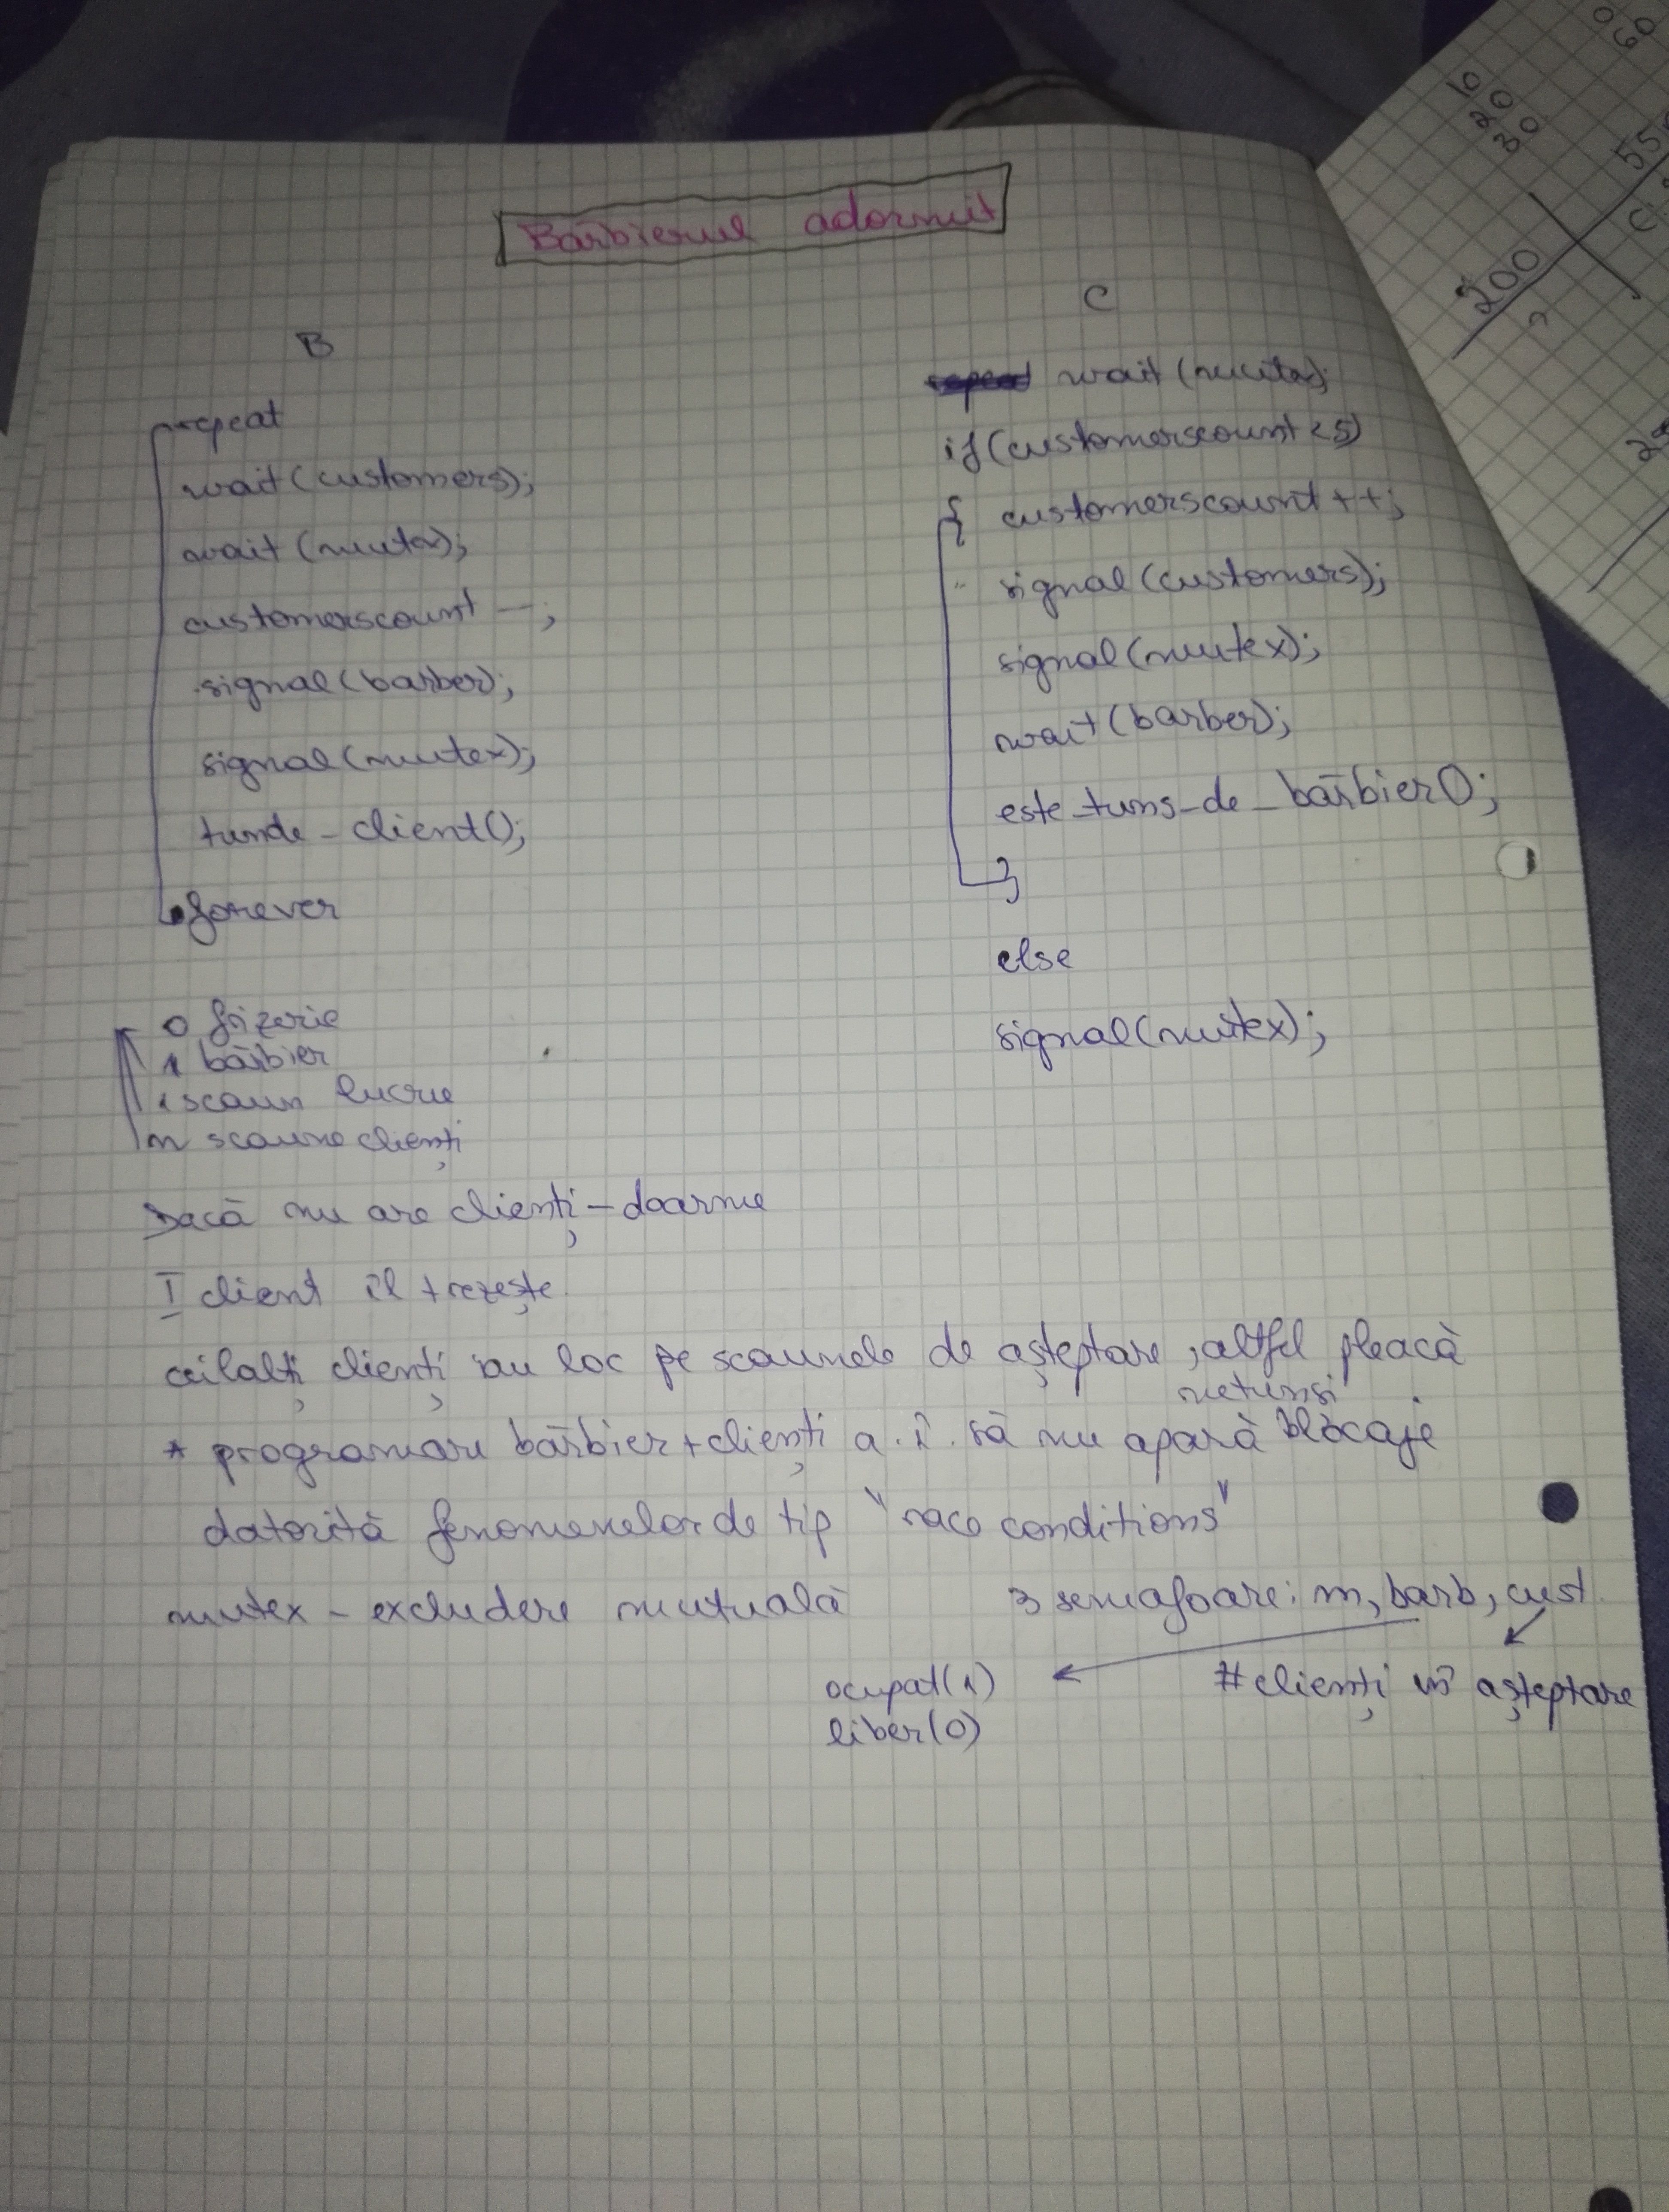 Bărbierul adormit
B
repeat
wait(customers);
wait(mutex);
customerscount --;
signal(barber);
signal(mutex);
tunde_client();
forever
C
wait(mutex);
if(customerscount<5)
{ customerscount++;
signal(customers);
signal(mutex);
wait(barber);
este_tuns_de_bărbier();
}
else
signal(mutex);
o frizerie
1 bărbier
1 scaun lucru
n scaune clienți
Dacă nu are clienți – doarme
I client îl trezește
ceilalți clienți iau loc pe scaunele de așteptare, altfel pleacă
netunși
* programare bărbier+clienți a.î. să nu apară blocaje
datorită fenomenelor de tip "race conditions"
mutex – excludere mutuală
3 semafoare: m, barb, cust.
ocupat(1)
liber(0)
#clienți în așteptare
10
20
30
0
60
55
200